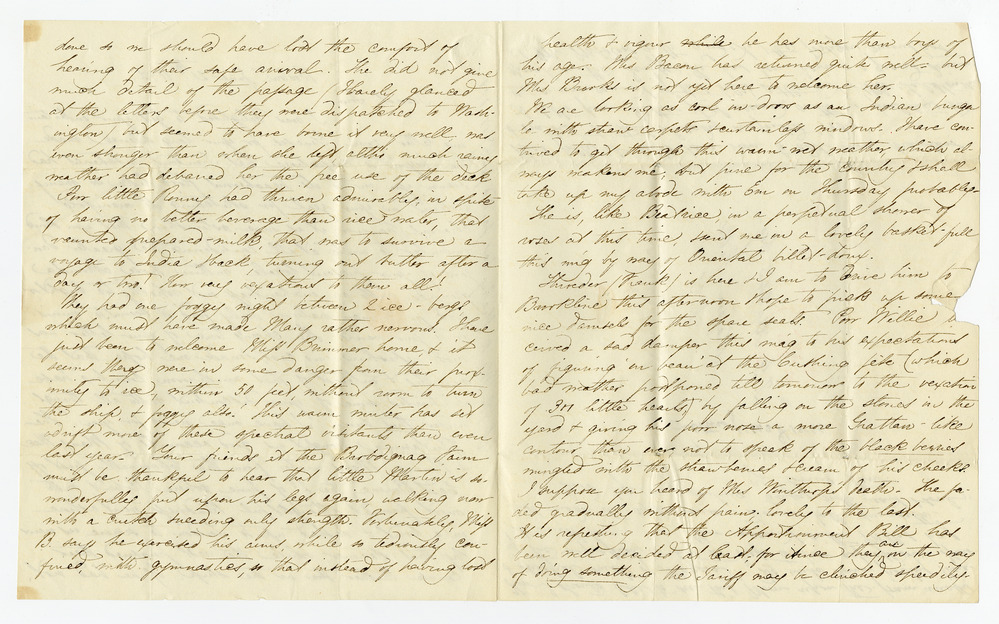 done so we should have lost the comfort of
hearing of their safe arrival. She did not give
much detail of the passage (I barely glanced
at the letters before they were dispatched to Wash-
ington) but seemed to have borne it very well was
even stronger than when she left altho much rainy
weather had debarred her the free use of the deck
Poor little Ronny had thriven admirably, in spite
of having no better beverage than rice water, that
vaunted prepared-milk, that was to survive a
voyage to India & back, turning out butter after a
day or two! How very vexatious to them all!
They had one foggy night between 2 ice-bergs
which must have made Mary rather nervous. I have
just been to welcome Miss Brimmer home & it
seems they were in some danger from their prox-
imity to ice, within 50 feet, without room to turn
the ship, & foggy also! This warm winter has set
adrift more of these spectral visitants than even
last year. Your friends at the Farm
must be thankful to hear that little Martin is so
wonderfully put upon his legs again walking now
with a crutch & needing only strength. Fortunately, Miss
B. says he exercised his arms, while so tediously con-
fined, with gymnastics, so that instead of having lost
health & vigour while he has more than boys of
his age. Mrs Bacon has returned quite well - but
Mrs Brooks is not yet here to welcome her.
We are looking as cool in-doors as an Indian bunga-
lo with straw carpets & curtainless windows. I have con-
trived to get through this warm wet weather which al-
ways makes me, but pine for the Country & shall
take up my abode with on Thursday probably
She is, like Beatrice in a perpetual shower of
roses at this time, sent me in a lovely basket-full
this mg by way of Oriental billet-doux.
Thireder (Frank) is here & I am to drive him to
Brookline this afternoon & hope to pick up some
nice damsels for the spare seats. Poor Willie re-
ceived a sad damper this mng to his expectations
of figuring en beau at the Cushing fete (which
bad weather postponed till tomorrow to the vexation
of 301 little hearts) by falling on the stones in the
yard & giving his poor nose a more Grattan-like
contour than ever, not to speak of the black berries
mingled with the strawberries & cream of his cheeks.
I suppose you heard of Mrs Winthrop's death. She fa-
ded gradually without pain - lovely to the last.
It is refreshing that the Apportionment Bill has
been well decided at last, for since they are in the way
of doing something the Tariff may be clinched speedily.